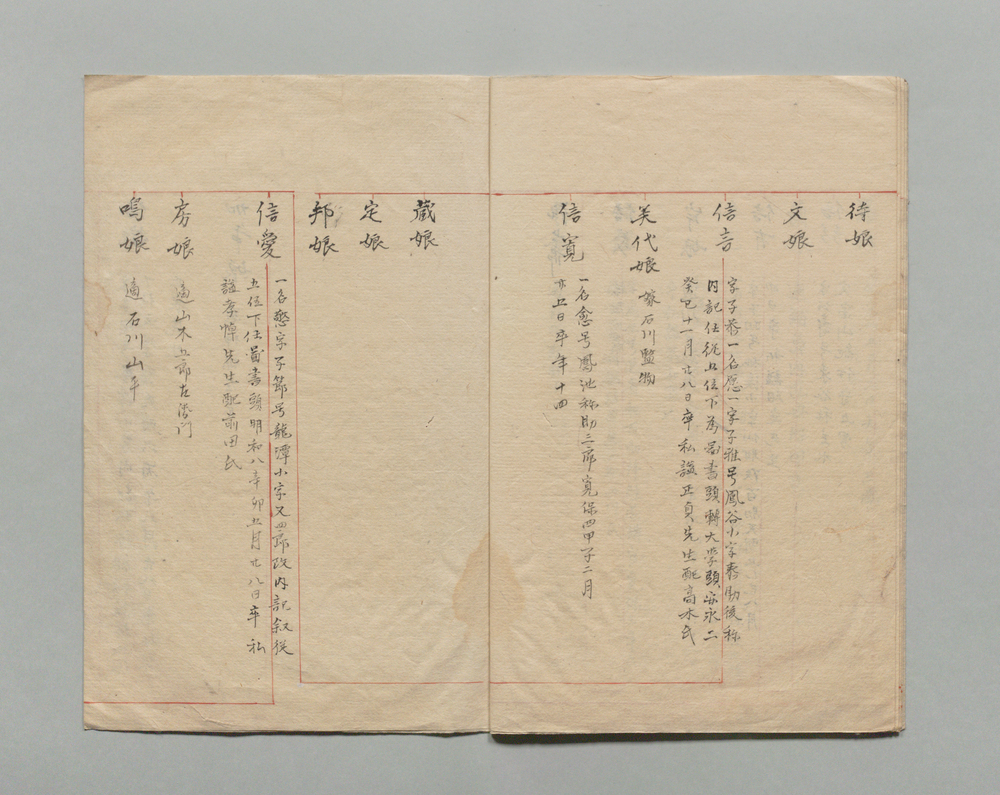 待娘
文娘
信言
字子恭一名愿一字子雅号鳳谷小字春助後称
内記任従五位下為図書頭轉大学頭安永二
癸巳十一月廿八日卒私諡正貞先生配高木氏
美代娘
嫁石川監物
信寛
一名愈号鳳池称助三郎寛保四甲子二月
廿五日卒年十四
蔵娘
定娘
邦娘
信愛
一名愸字子節号龍潭小字又四郎改内記叙従
五位下任図書頭明和八辛卯五月廿八日卒私
諡孝悼先生配前田氏
房娘
適山木五郎左衛門
鳴娘
適石川山平